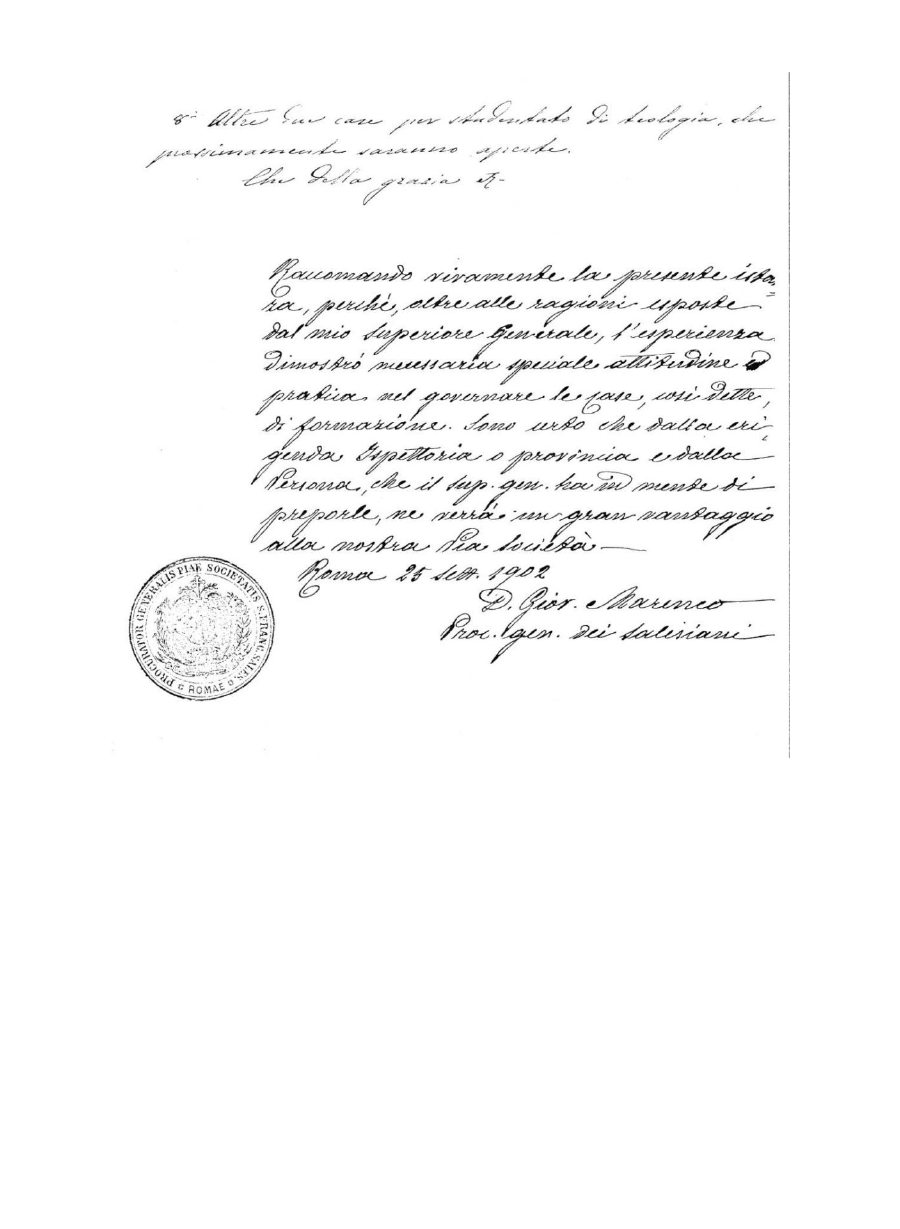 8° Altre due case per studentato di teologia, che
prossimamente saranno aperte.
Che della grazia etc.
Raccomando vivamente la presente istan=
za, perchè, oltre alle ragioni esposte
dal mio Superiore Generale, l'esperienza
dimostrò necessaria speciale attitudine e
pratica nel governare le case, così dette,
di formazione. Sono certo che dalla eri-
genda Ispettoria o provincia e dalla
Persona, che il sup. gen. ha in mente di
preporle, ne verrà un gran vantaggio
alla nostra Pia Società.
Roma 25 sett. 1902
D. Giov. Marenco
Proc. gen. dei Salesiani
PROCURATOR GENERALIS PIAE SOCIETATIS S. FRANC. SALES.
ROMAE